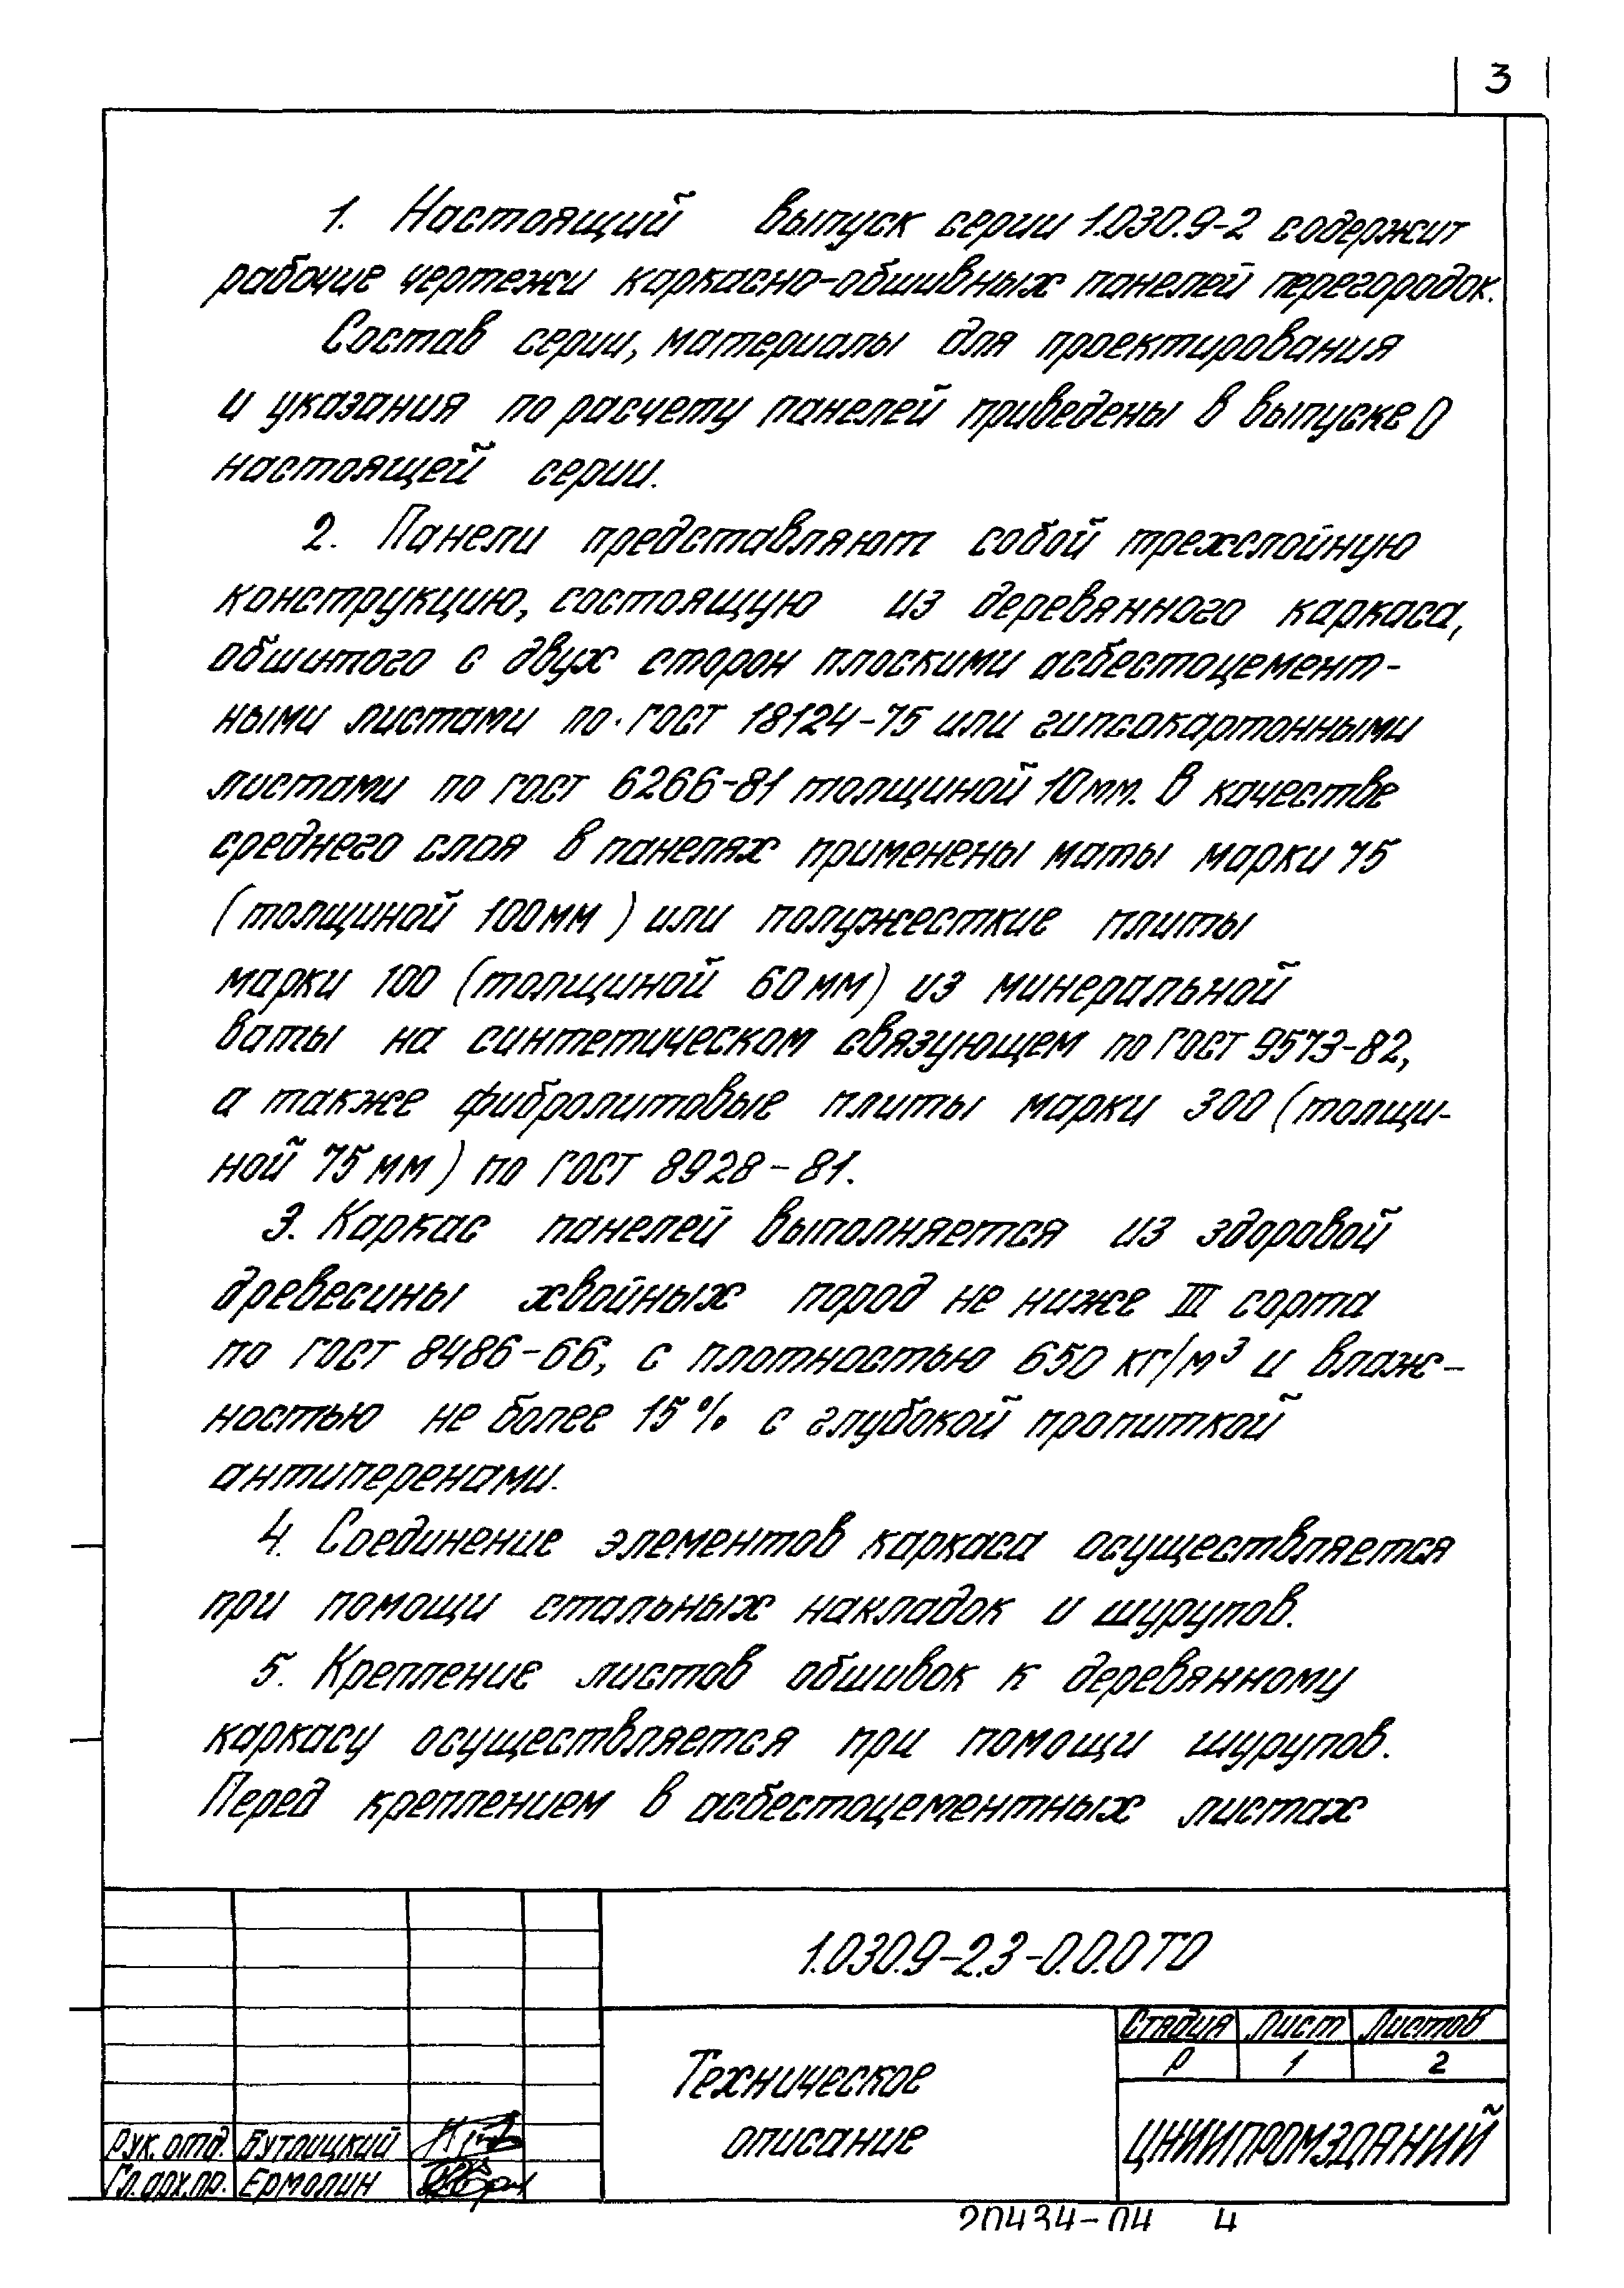 3
1. Настоящий выпуск серии 1.030.9-2 содержит
рабочие чертежи каркасно-обшивных панелей перегородок.
Состав серии, материалы для проектирования
и указания по расчету панелей приведены в выпуске 0
настоящей серии.
2. Панели представляют собой трехслойную
конструкцию, состоящую из деревянного каркаса,
обшитого с двух сторон плоскими асбестоцемент-
ными листами по ГОСТ 18124-75 или гипсокартонными
листами по ГОСТ 6266-81 толщиной 10 мм. В качестве
среднего слоя в панелях применены маты марки 75
(толщиной 100 мм) или полужесткие плиты
марки 100 (толщиной 60 мм) из минеральной
ваты на синтетическом связующем по ГОСТ 9573-82,
а также фибролитовые плиты марки 300 (толщи-
ной 75 мм) по ГОСТ 8928-81.
3. Каркас панелей выполняется из здоровой
древесины хвойных пород не ниже III сорта
по ГОСТ 8486-66, с плотностью 650 кг/м³ и влаж-
ностью не более 15% с глубокой пропиткой
антиперенами.
4. Соединение элементов каркаса осуществляется
при помощи стальных накладок и шурупов.
5. Крепление листов обшивок к деревянному
каркасу осуществляется при помощи шурупов.
Перед креплением в асбестоцементных листах
1.030.9-2.3-0.0.0 ТО
Техническое
описание
Стадия Лист Листов
Р 1 2
ЦНИИПРОМЗДАНИЙ
Рук. отд. Бутлицкий
Гл. арх. пр. Ермолин
20434-04 4